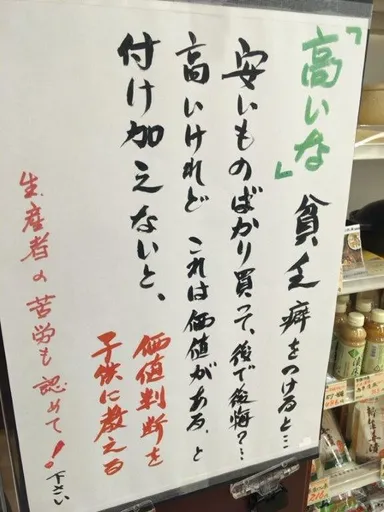 「高いな」貧乏癖をつけると…
安いものばかり買って、後で後悔?…
高いけれど これは価値がある、と
付け加えないと、
価値判断を
子供に教える
生産者の苦労も認めて!下さい